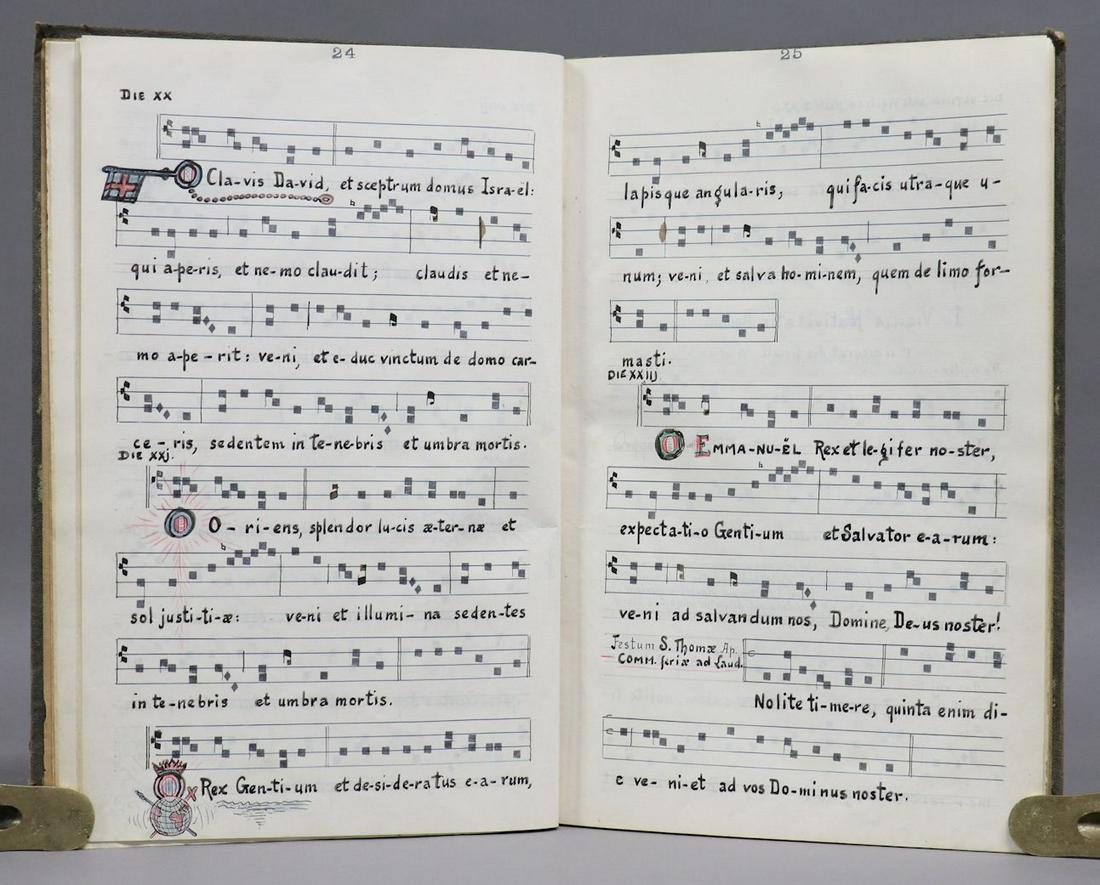 24
DIE XX
O Cla-vis Da-vid, et sceptrum domus Isra-ël:
qui a-pe-ris, et ne-mo clau-dit; claudis et ne-
mo a-pe-rit: ve-ni, et e-duc vinctum de domo car-
ce-ris, sedentem in te-ne-bris et umbra mortis.
DIE XXj.
O O-ri-ens, splendor lu-cis æ-ter-næ et
sol justi-ti-æ: ve-ni et illumi-na seden-tes
in te-nebris et umbra mortis.
O Rex Gen-ti-um et de-si-de-ratus e-a-rum,
25
lapisque angula-ris, qui fa-cis utra-que u-
num; ve-ni, et salva ho-mi-nem, quem de limo for-
masti.
DIE XXIIJ
O EMMA-NU-ĔL Rex et le-gi fer no-ster,
expecta-ti-o Genti-um et Salvator e-a-rum:
ve-ni ad salvandum nos, Domine, De-us noster!
Festum S. Thomæ Ap.
COMM. feriæ ad Laud.
Nolite ti-me-re, quinta enim di-
e ve-ni-et ad vos Do-mi nus noster.